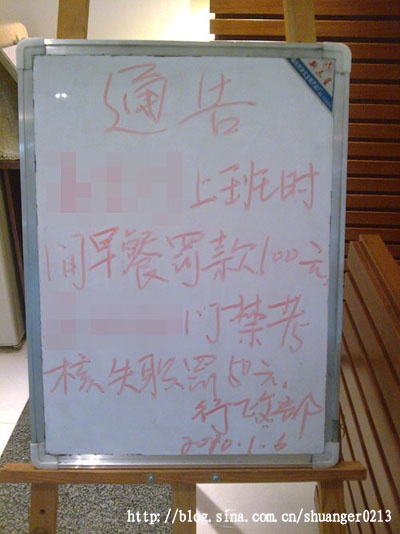 通告
上班时
间早餐罚款100元,
门禁考
核失职罚50元。
行政部
2010.1.6
http://blog.sina.com.cn/shuanger0213